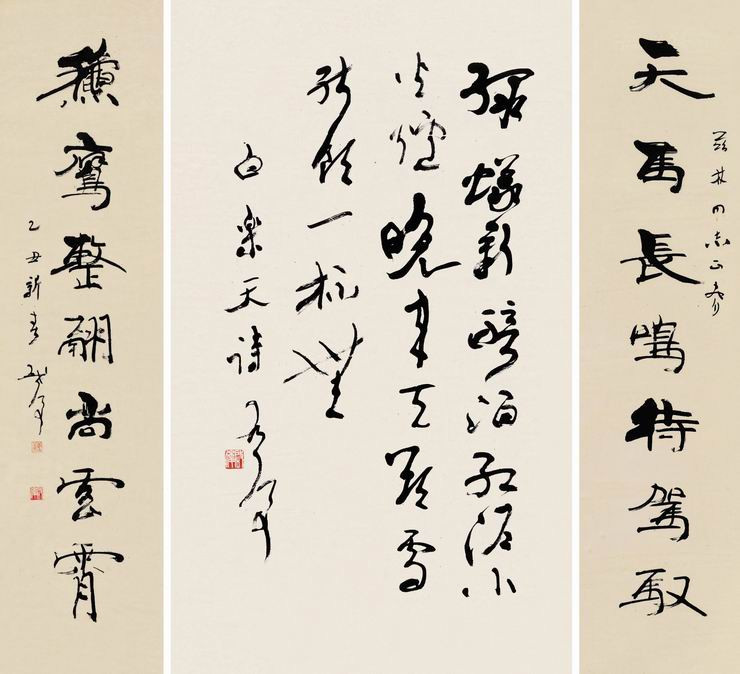 天馬長鳴待駕馭
林同志正
綠蟻新醅酒紅泥小
火爐晚來天欲雪
能飲一杯無
白樂天詩
龝鷹整翮尚雲霄
乙丑新春